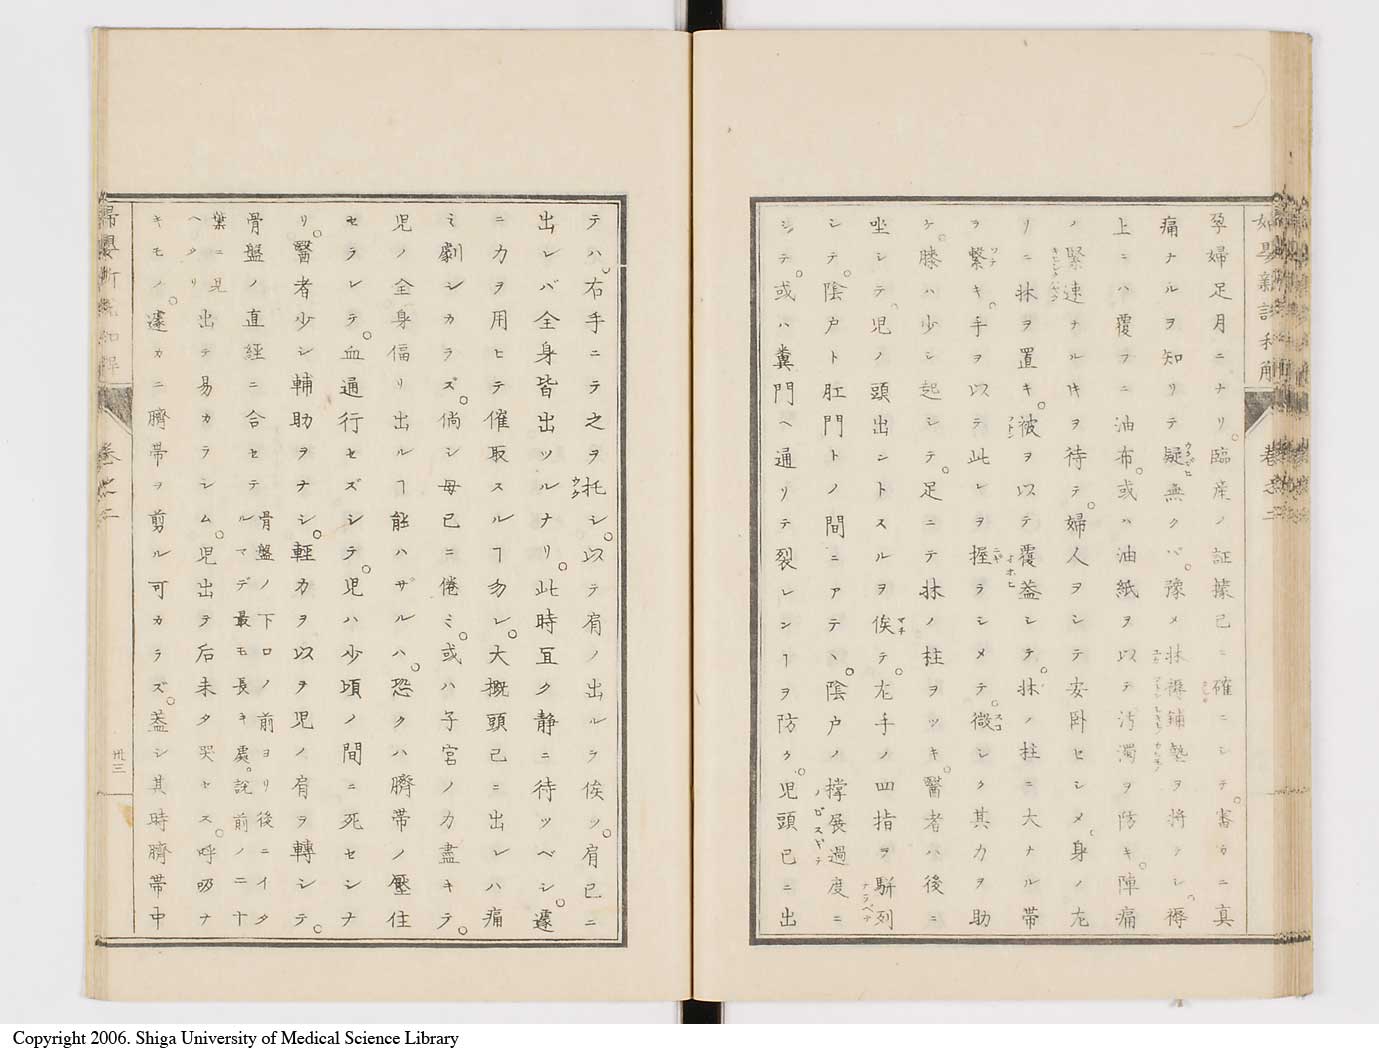 孕婦足月ニナリ。臨産ノ証據已ニ確ニシテ。審カニ真
痛ナルヲ知リテ疑無クバ。豫メ牀褥鋪墊ヲ将テシ。褥
上ニハ覆フニ油布。或ハ油紙ヲ以テ汚濁ヲ防キ。陣痛
ノ緊速ナル𪜈ヲ待テ。婦人ヲシテ安卧セシメ。身ノ左
リニ牀ヲ置キ。被ヲ以テ覆葢シテ。牀ノ柱ニ大ナル帯
ヲ繋キ。手ヲ以テ此レヲ握ラシメテ。微シク其力ヲ助
ケ。膝ハ少シ起シテ。足ニテ牀ノ柱ヲツキ。醫者ハ後ニ
坐シテ。児ノ頭出ントスルヲ俟テ。左手ノ四指ヲ駢列
シテ。陰户ト肛門トノ間ニアテヽ。陰户ノ撑展過度ニ
シテ。或ハ糞門ヘ通リテ裂レンヿヲ防ク。児頭已ニ出
テハ。右手ニテ之ヲ托シ。以テ肩ノ出ルヲ俟ツ。肩已ニ
出レバ全身皆出ツルナリ。此時宜ク静ニ待ツベシ。遽
ニ力ヲ用ヒテ催取スルヿ勿レ。大概頭已ニ出レハ痛
ミ劇シカラズ。倘シ母已ニ倦ミ。或ハ子宮ノ力盡キテ。
児ノ全身偪リ出ルヿ能ハザルハ。恐クハ臍帯ノ壓住
セラレテ。血通行セズシテ。児ハ少頃ノ間ニ死セシナ
リ。醫者少シ輔助ヲナシ。輕力ヲ以ヲ児ノ肩ヲ轉シテ。
骨盤ノ直經ニ合セテ骨盤ノ下口ノ前ヨリ後ニイタ
ルマデ最モ長キ處。説前ノ二十
葉ニ見
ヘタリ出テ易カラシム。児出テ后未タ哭セス。呼吸ナ
キモノ。遽カニ臍帯ヲ剪ル可カラズ。葢シ其時臍帯中
卷之二
卅三
Copyright 2006. Shiga University of Medical Science Library